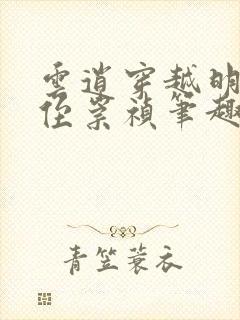 雲逍穿越明
侄崇禎筆趣
青笠蓑衣